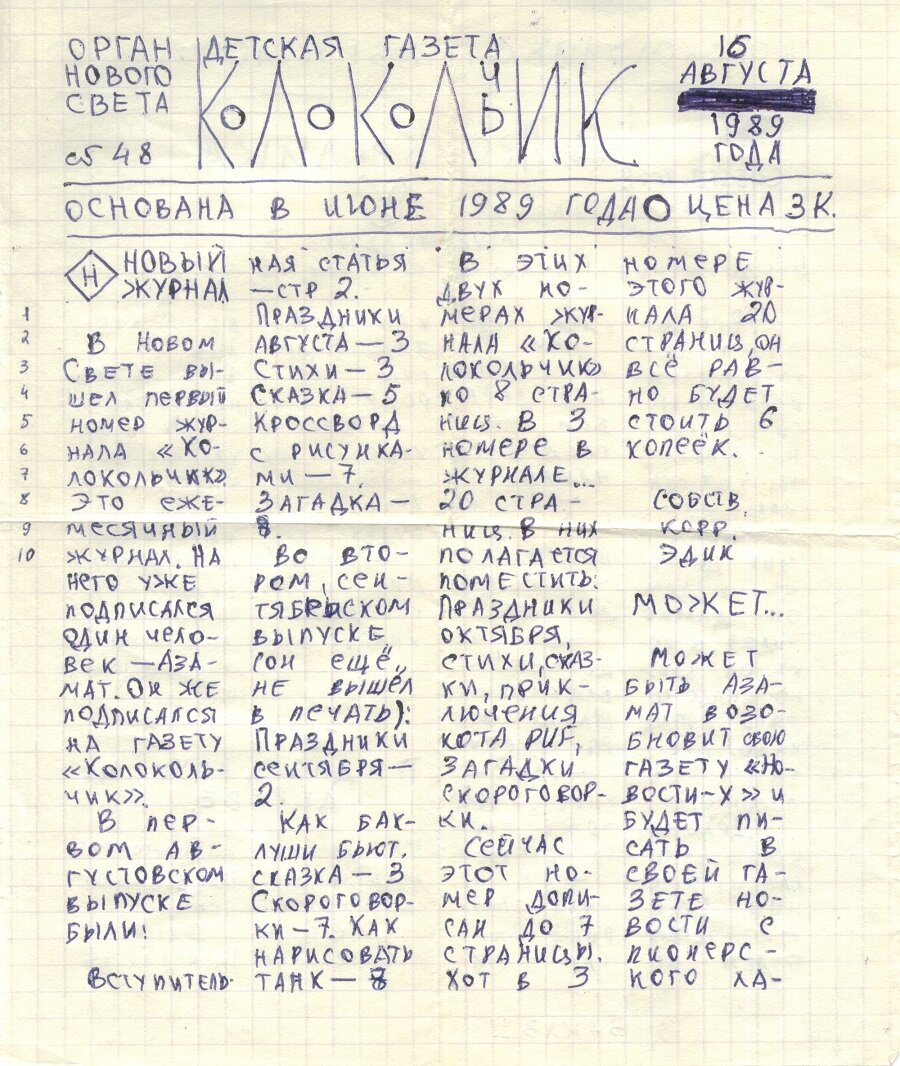 ОРГАН
НОВОГО
СВЕТА
сб 48
ДЕТСКАЯ ГАЗЕТА
КОЛОКОЛЬЧИК
16
АВГУСТА
1989
ГОДА
ОСНОВАНА В ИЮНЕ 1989 ГОДА О ЦЕНА 3 К.
Н НОВЫЙ
ЖУРНАЛ
1
2
3
4
5
6
7
8
9
10
В НОВОМ
СВЕТЕ ВЫ-
ШЕЛ ПЕРВЫЙ
НОМЕР ЖУР-
НАЛА «КО-
ЛОКОЛЬЧИК»
ЭТО ЕЖЕ-
МЕСЯЧНЫЙ
ЖУРНАЛ. НА
НЕГО УЖЕ
ПОДПИСАЛСЯ
ОДИН ЧЕЛО-
ВЕК — АЗА-
МАТ. ОН ЖЕ
ПОДПИСАЛСЯ
НА ГАЗЕТУ
«КОЛОКОЛЬ-
ЧИК».
В ПЕР-
ВОМ АВ-
ГУСТОВСКОМ
ВЫПУСКЕ
БЫЛИ:
ВСТУПИТЕЛЬ-
НАЯ СТАТЬЯ
— СТР 2.
ПРАЗДНИКИ
АВГУСТА — 3
СТИХИ — 3
СКАЗКА — 5
КРОССВОРД
С РИСУНКА-
МИ — 7.
ЗАГАДКА —
8.
ВО ВТО-
РОМ, СЕН-
ТЯБРЬСКОМ
ВЫПУСКЕ
(ОН ЕЩЁ
НЕ ВЫШЕЛ
В ПЕЧАТЬ):
ПРАЗДНИКИ
СЕНТЯБРЯ —
2.
КАК БАК-
ЛУШИ БЬЮТ.
СКАЗКА — 3
СКОРОГОВОР-
КИ — 7. КАК
НАРИСОВАТЬ
ТАНК — 8
В ЭТИХ
ДВУХ НО-
МЕРАХ ЖУР-
НАЛА «КО-
ЛОКОЛЬЧИК»
ПО 8 СТРА-
НИЦ. В 3
НОМЕРЕ В
ЖУРНАЛЕ...
20 СТРА-
НИЦ. В НИХ
ПОЛАГАЕТСЯ
ПОМЕСТИТЬ:
ПРАЗДНИКИ
ОКТЯБРЯ,
СТИХИ, СКАЗ-
КИ, ПРИК-
ЛЮЧЕНИЯ
КОТА РИГ,
ЗАГАДКИ
СКОРОГОВОР-
КИ.
СЕЙЧАС
ЭТОТ НО-
МЕР ДОПИ-
САН ДО 7
СТРАНИЦЫ.
ХОТ В 3
НОМЕРЕ
ЭТОГО ЖУР-
НАЛА 20
СТРАНИЦ, ОН
ВСЁ РАВ-
НО БУДЕТ
СТОИТЬ 6
КОПЕЕК.
СОБСТВ.
КОРР.
ЭДИК
МОЖЕТ...
МОЖЕТ
БЫТЬ АЗА-
МАТ ВОЗО-
БНОВИТ СВОЮ
ГАЗЕТУ «НО-
ВОСТИ-Х» И
БУДЕТ ПИ-
САТЬ В
СВОЕЙ ГА-
ЗЕТЕ НО-
ВОСТИ С
ПИОНЕРС-
КОГО ЛА-